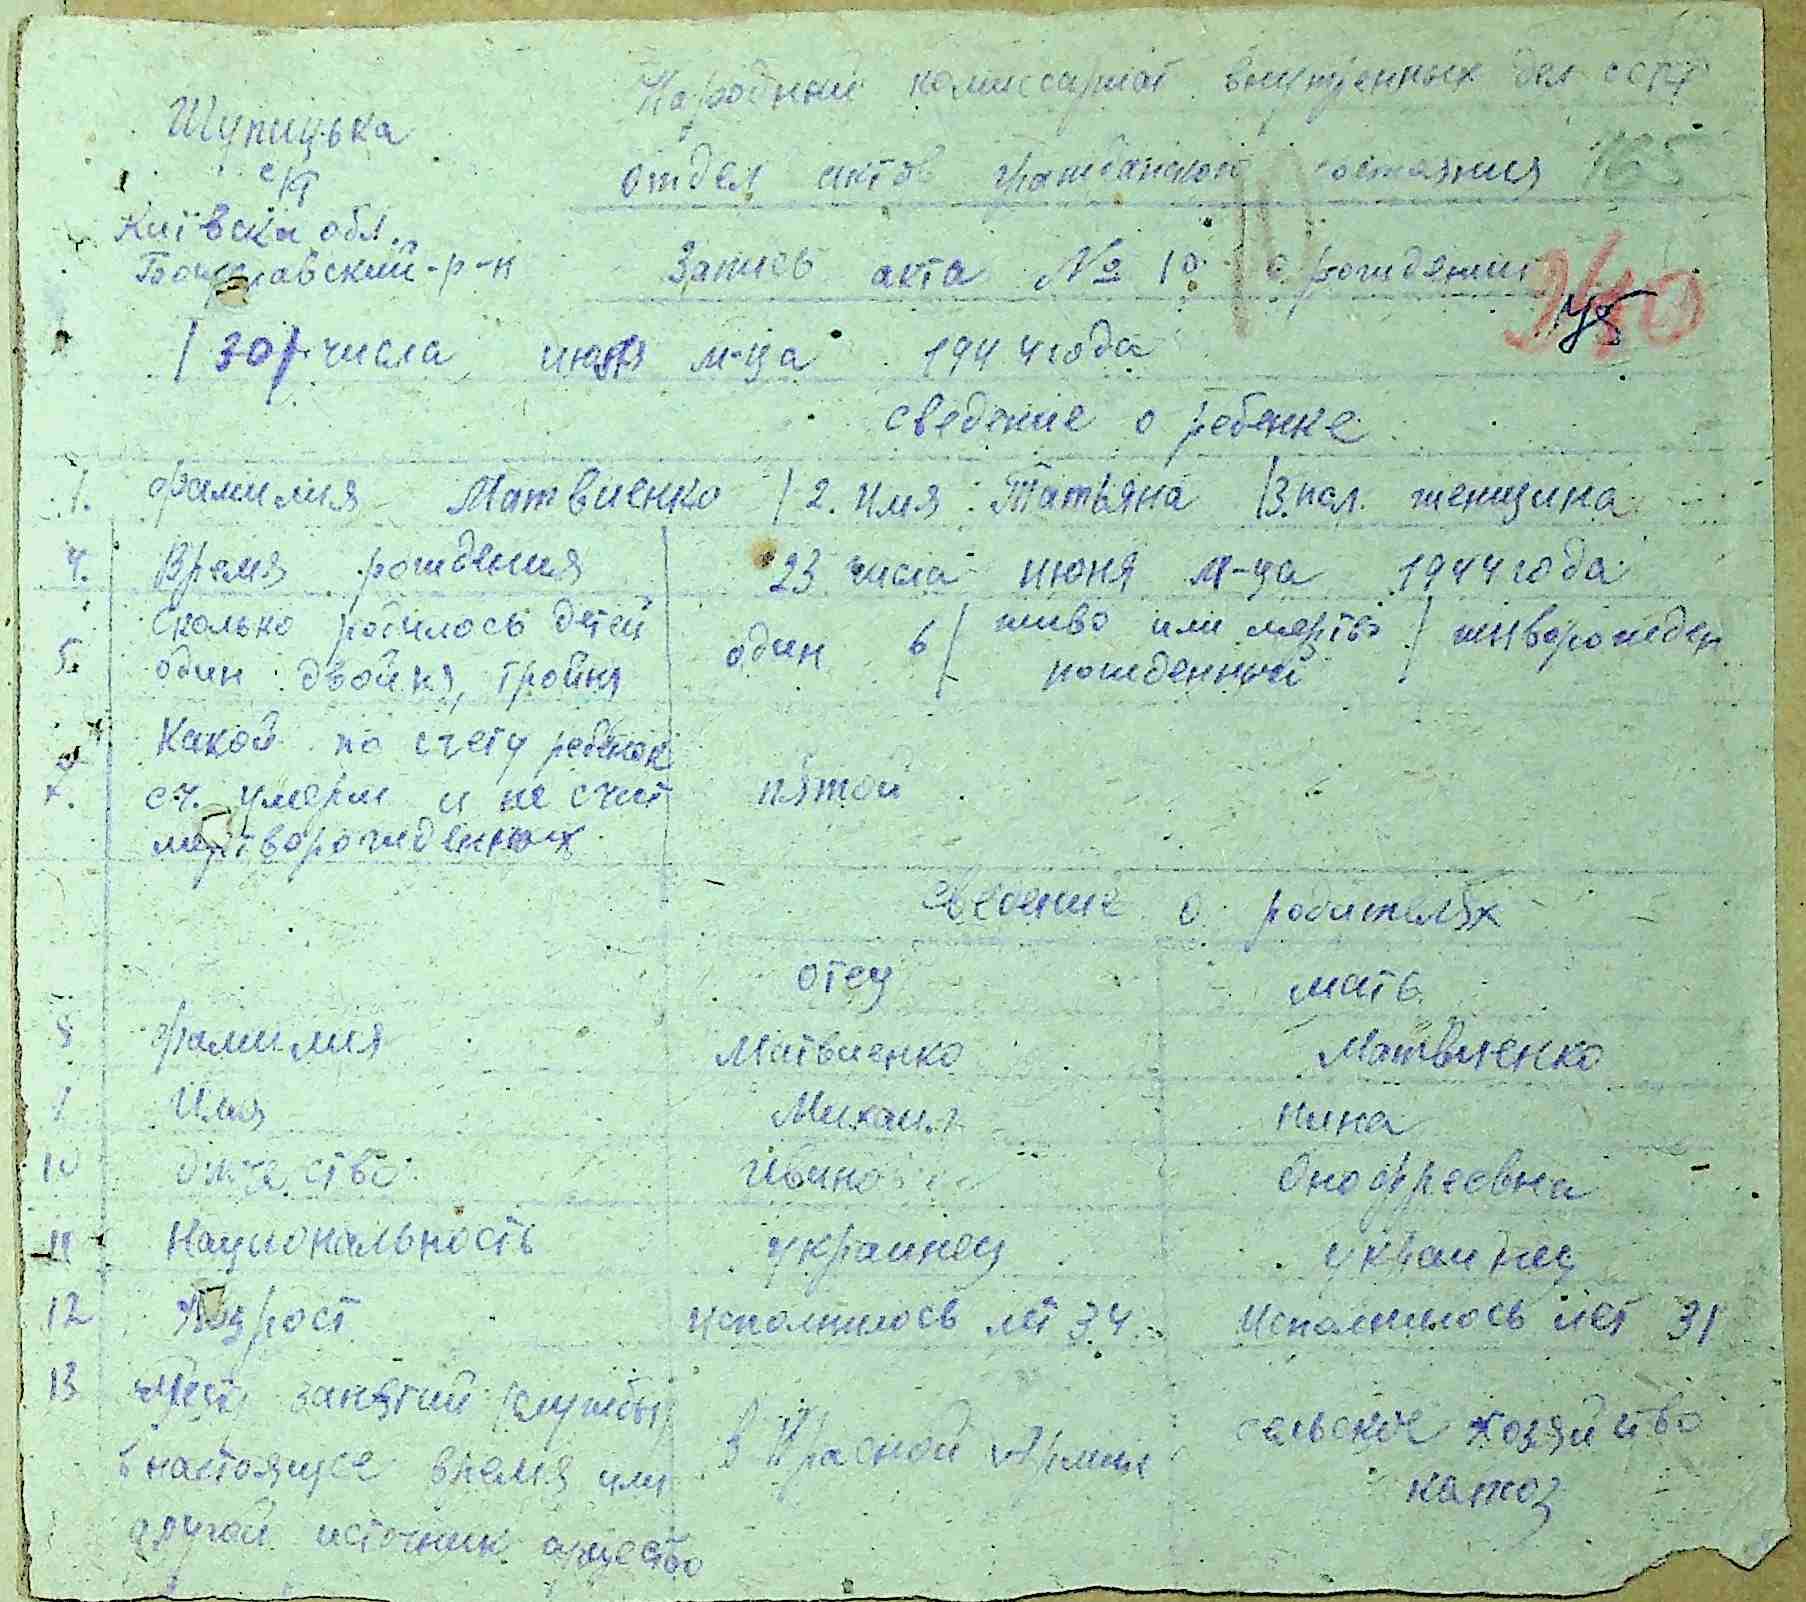 Народный комиссариат внутренных дел СССР
Шупицька
с/р
отдел актов гражданского состояния 165
Київска обл.
Богуславский-р-н
Запись акта № 10 о рождении
/30/ числа июня м-ца 1944 года
сведение о ребенке
1. фамилия Матвиенко / 2. Имя Татьяна / 3. пол. женщина
4. Время рождения 23 числа июня м-ца 1944 года
5. Сколько родилось детей один двойня, тройня один 6/ живо или мертво рожденный / живорожден
7. Какой по счету ребенок сч. умерш и не счит мертворожденных пятой
сведение о родителях
отец мать
8 фамилия Матвиенко Матвиенко
9 Имя Михаил Нина
10 Отчество Иванов Онофреевна
11 Национальность украинец украинец
12 Возрост исполнилось лет 34. Исполнилось лет 31
13 Место занятий службы в настоящее время или другой источник существо
в Красной Армии
сельское хозяйство